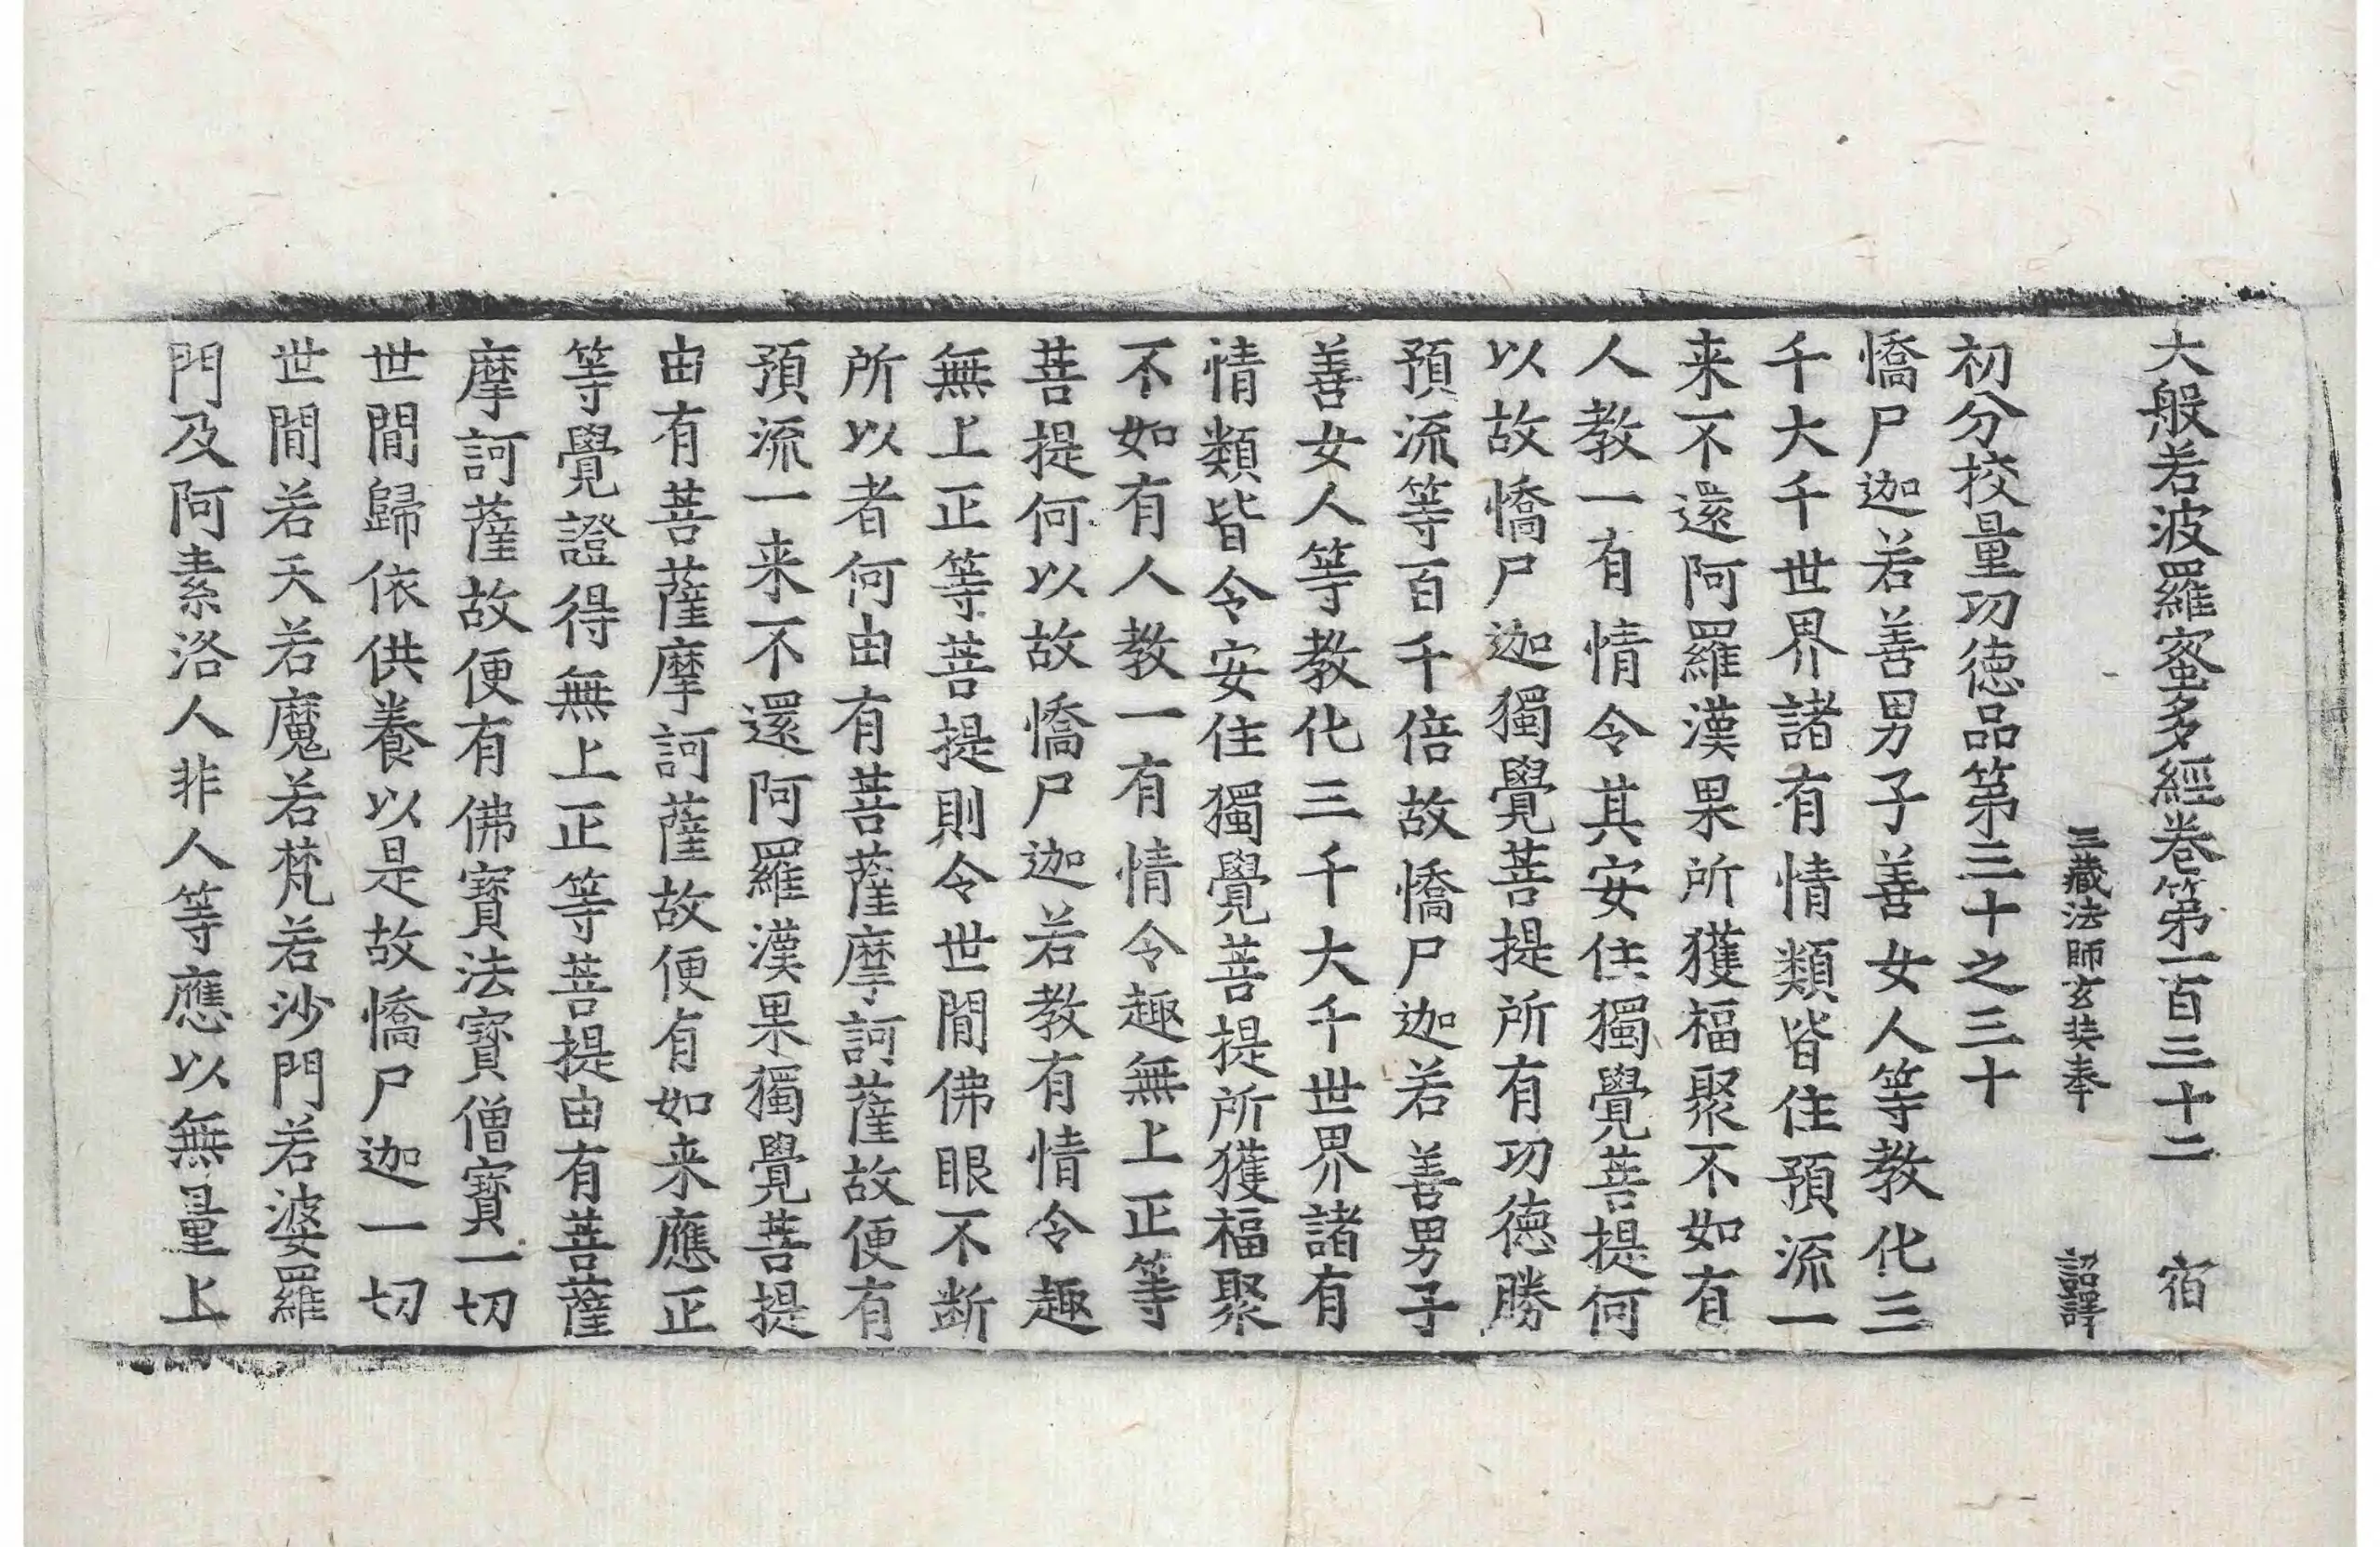 大般若波羅蜜多經卷第一百三十二 宿
三藏法師玄奘奉 詔譯
初分挍量功德品第三十之三十
憍尸迦若善男子善女人等教化三
千大千世界諸有情類皆住預流一
来不還阿羅漢果所獲福聚不如有
人教一有情令其安住獨覺菩提何
以故憍尸迦獨覺菩提所有功德勝
預流等百千倍故憍尸迦若善男子
善女人等教化三千大千世界諸有
情類皆令安住獨覺菩提所獲福聚
不如有人教一有情令趣無上正等
菩提何以故憍尸迦若教有情令趣
無上正等菩提則令世間佛眼不断
所以者何由有菩薩摩訶薩故便有
預流一来不還阿羅漢果獨覺菩提
由有菩薩摩訶薩故便有如来應正
等覺證得無上正等菩提由有菩薩
摩訶薩故便有佛寶法寶僧寶一切
世間歸依供養以是故憍尸迦一切
世間若天若魔若梵若沙門若婆羅
門及阿素洛人非人等應以無量上